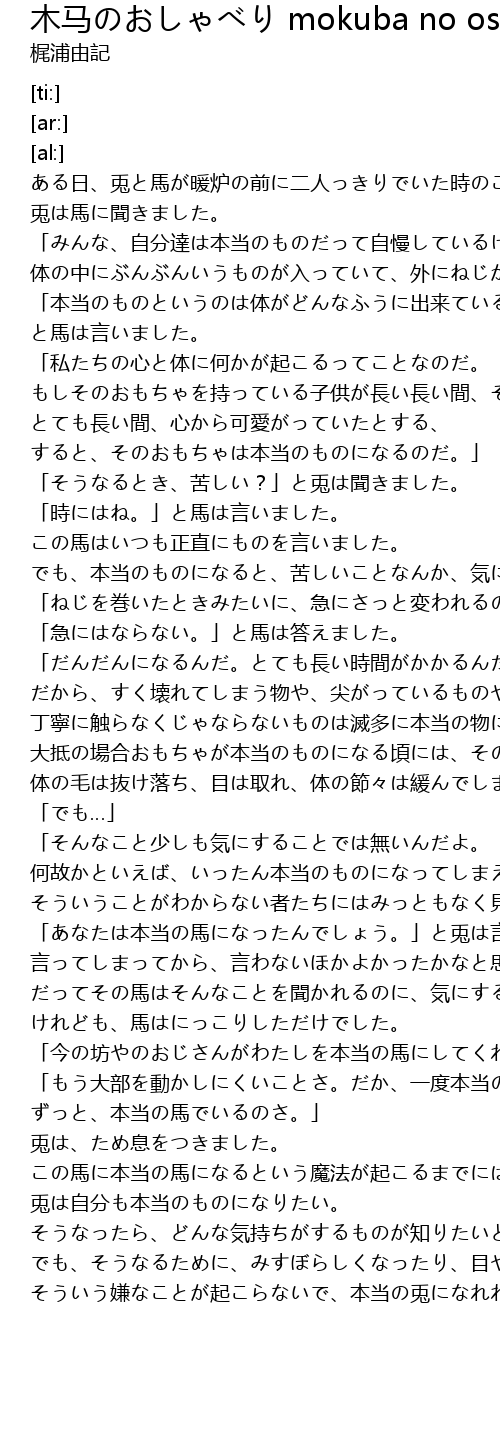 木马のおしゃべり mokuba no os
梶浦由記
[ti:]
[ar:]
[al:]
ある日、兎と馬が暖炉の前に二人っきりでいた時のこ
兎は馬に聞きました。
「みんな、自分達は本当のものだって自慢しているけ
体の中にぶんぶんいうものが入っていて、外にねじか
「本当のものというのは体がどんなふうに出来ている
と馬は言いました。
「私たちの心と体に何かが起こるってことなのだ。
もしそのおもちゃを持っている子供が長い長い間、そ
とても長い間、心から可愛がっていたとする、
すると、そのおもちゃは本当のものになるのだ。」
「そうなるとき、苦しい？」と兎は聞きました。
「時にはね。」と馬は言いました。
この馬はいつも正直にものを言いました。
でも、本当のものになると、苦しいことなんか、気に
「ねじを巻いたときみたいに、急にさっと変われるの
「急にはならない。」と馬は答えました。
「だんだんになるんだ。とても長い時間がかかるんだ
だから、すく壊れてしまう物や、尖がっているものや
丁寧に触らなくじゃならないものは滅多に本当の物に
大抵の場合おもちゃが本当のものになる頃には、その
体の毛は抜け落ち、目は取れ、体の節々は緩んでしま
「でも...」
「そんなこと少しも気にすることでは無いんだよ。
何故かといえば、いったん本当のものになってしまえ
そういうことがわからない者たちにはみっともなく見
「あなたは本当の馬になったんでしょう。」と兎は言
言ってしまってから、言わないほかよかったかなと思
だってその馬はそんなことを聞かれるのに、気にする
けれども、馬はにっこりしただけでした。
「今の坊やのおじさんがわたしを本当の馬にしてくれ
「もう大部を動かしにくいことさ。だか、一度本当の
ずっと、本当の馬でいるのさ。」
兎は、ため息をつきました。
この馬に本当の馬になるという魔法が起こるまでには
兎は自分も本当のものになりたい。
そうなったら、どんな気持ちがするものが知りたいと
でも、そうなるために、みすぼらしくなったり、目や
そういう嫌なことが起こらないで、本当の兎になれれ